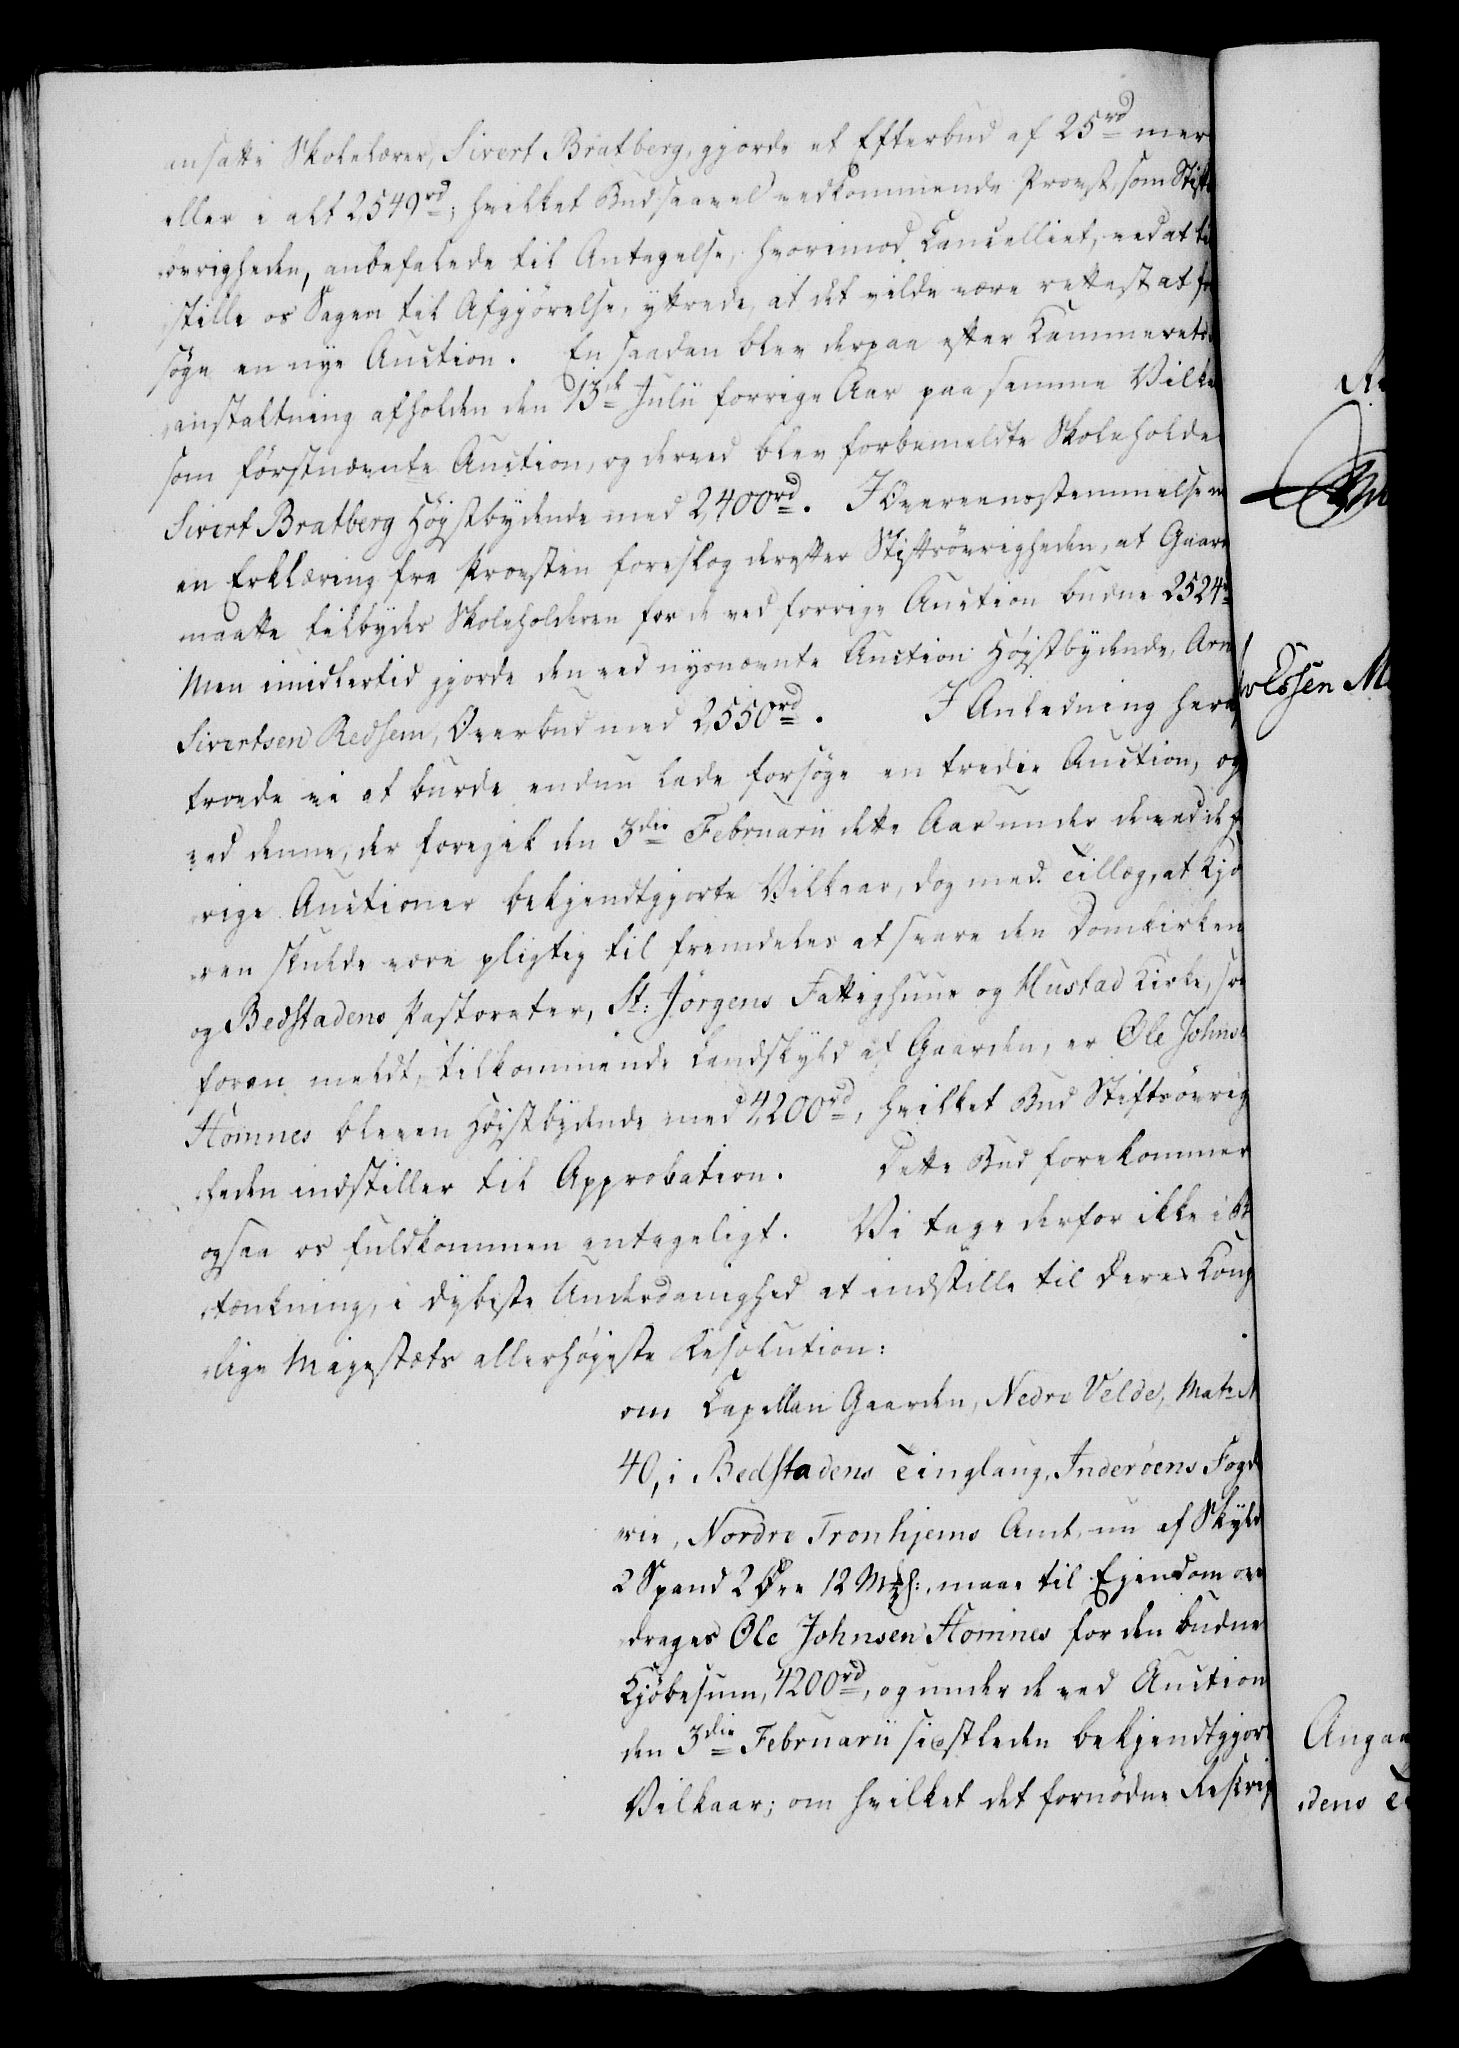 ansatte Skolelærer, Sivert Bratberg, gjorde et Efterbud af 25rd mer
eller i alt 2549rd; hvilket Bud saavel vedkommende Provst, som Stifts
øvrigheden, anbefalede til Antagelse, hvorimod Cancelliet, ved at til
stille os Sagen til Afgjörelse, yttrede, at det vilde være rettest at for
söge en nye Auction. En saadan blev derpaa efter Kammerets
anstaltning afholden den 13de Julii forrige Aar paa samme Vilka
som förstnævnte Auction, og derved blev forbemeldte Skoleholder
Sivert Bratberg Högstbydende med 2,400rd. I Overeensstemmelse m
en Erklæring fra Provsten foreslog derefter Stiftsövrigheden, at Gaard
maatte tilbydes Skoleholderen for de ved forrige Auction budne 2524rd
Men imidlertid gjorde den ved nysnævnte Auction Högstbydende, Arn
Sivertsen Redsem, Overbud med 2,550rd. I Anledning heraf
troede vi at burde endnu lade forsöge en tredie Auction, og
ved denne, der foregik den 3die Februarii dette Aar under de ved de fo
rige Auctioner bekjendtgjorte Vilkaar, dog med Tillæg, at Kjö
ren skulde være pligtig til fremdeles at svare den Domkirken
og Bedstadens Pastorater, St: Jörgens Fattighuus og Hustad Kirke, som
foran meldt, tilkommende Landskyld af Gaarden, er Ole Johns
Homnes bleven Höistbydende med 4,200rd, hvilket Bud Stiftsövrig
heden indstiller til Approbation. Dette Bud forekommer
ogsaa os fuldkommen antageligt. Vi tage derfor ikke i Be
tænkning, i dybeste Underdanighed at indstille til Deres Kong
lige Majestæts allerhöieste Resolution:
om Capellan Gaarden, Nedre Velde, Matr. N
40, i Bedstadens Tinglaug, Inderöens Fogd
rie, Nordre Tronhjems Amt, nu af Skyld
2 Spand 2 Öre 12 Mkl:, maae til Eiendom over
drages Ole Johnsen Homnes for den budne
Kjöbesum, 4200rd, og under de ved Auction
den 3die Februarii sidstleden bekjendtgjort
Vilkaar; om hvilket det fornödne Rescrip
Essen M
Angaa
dens T